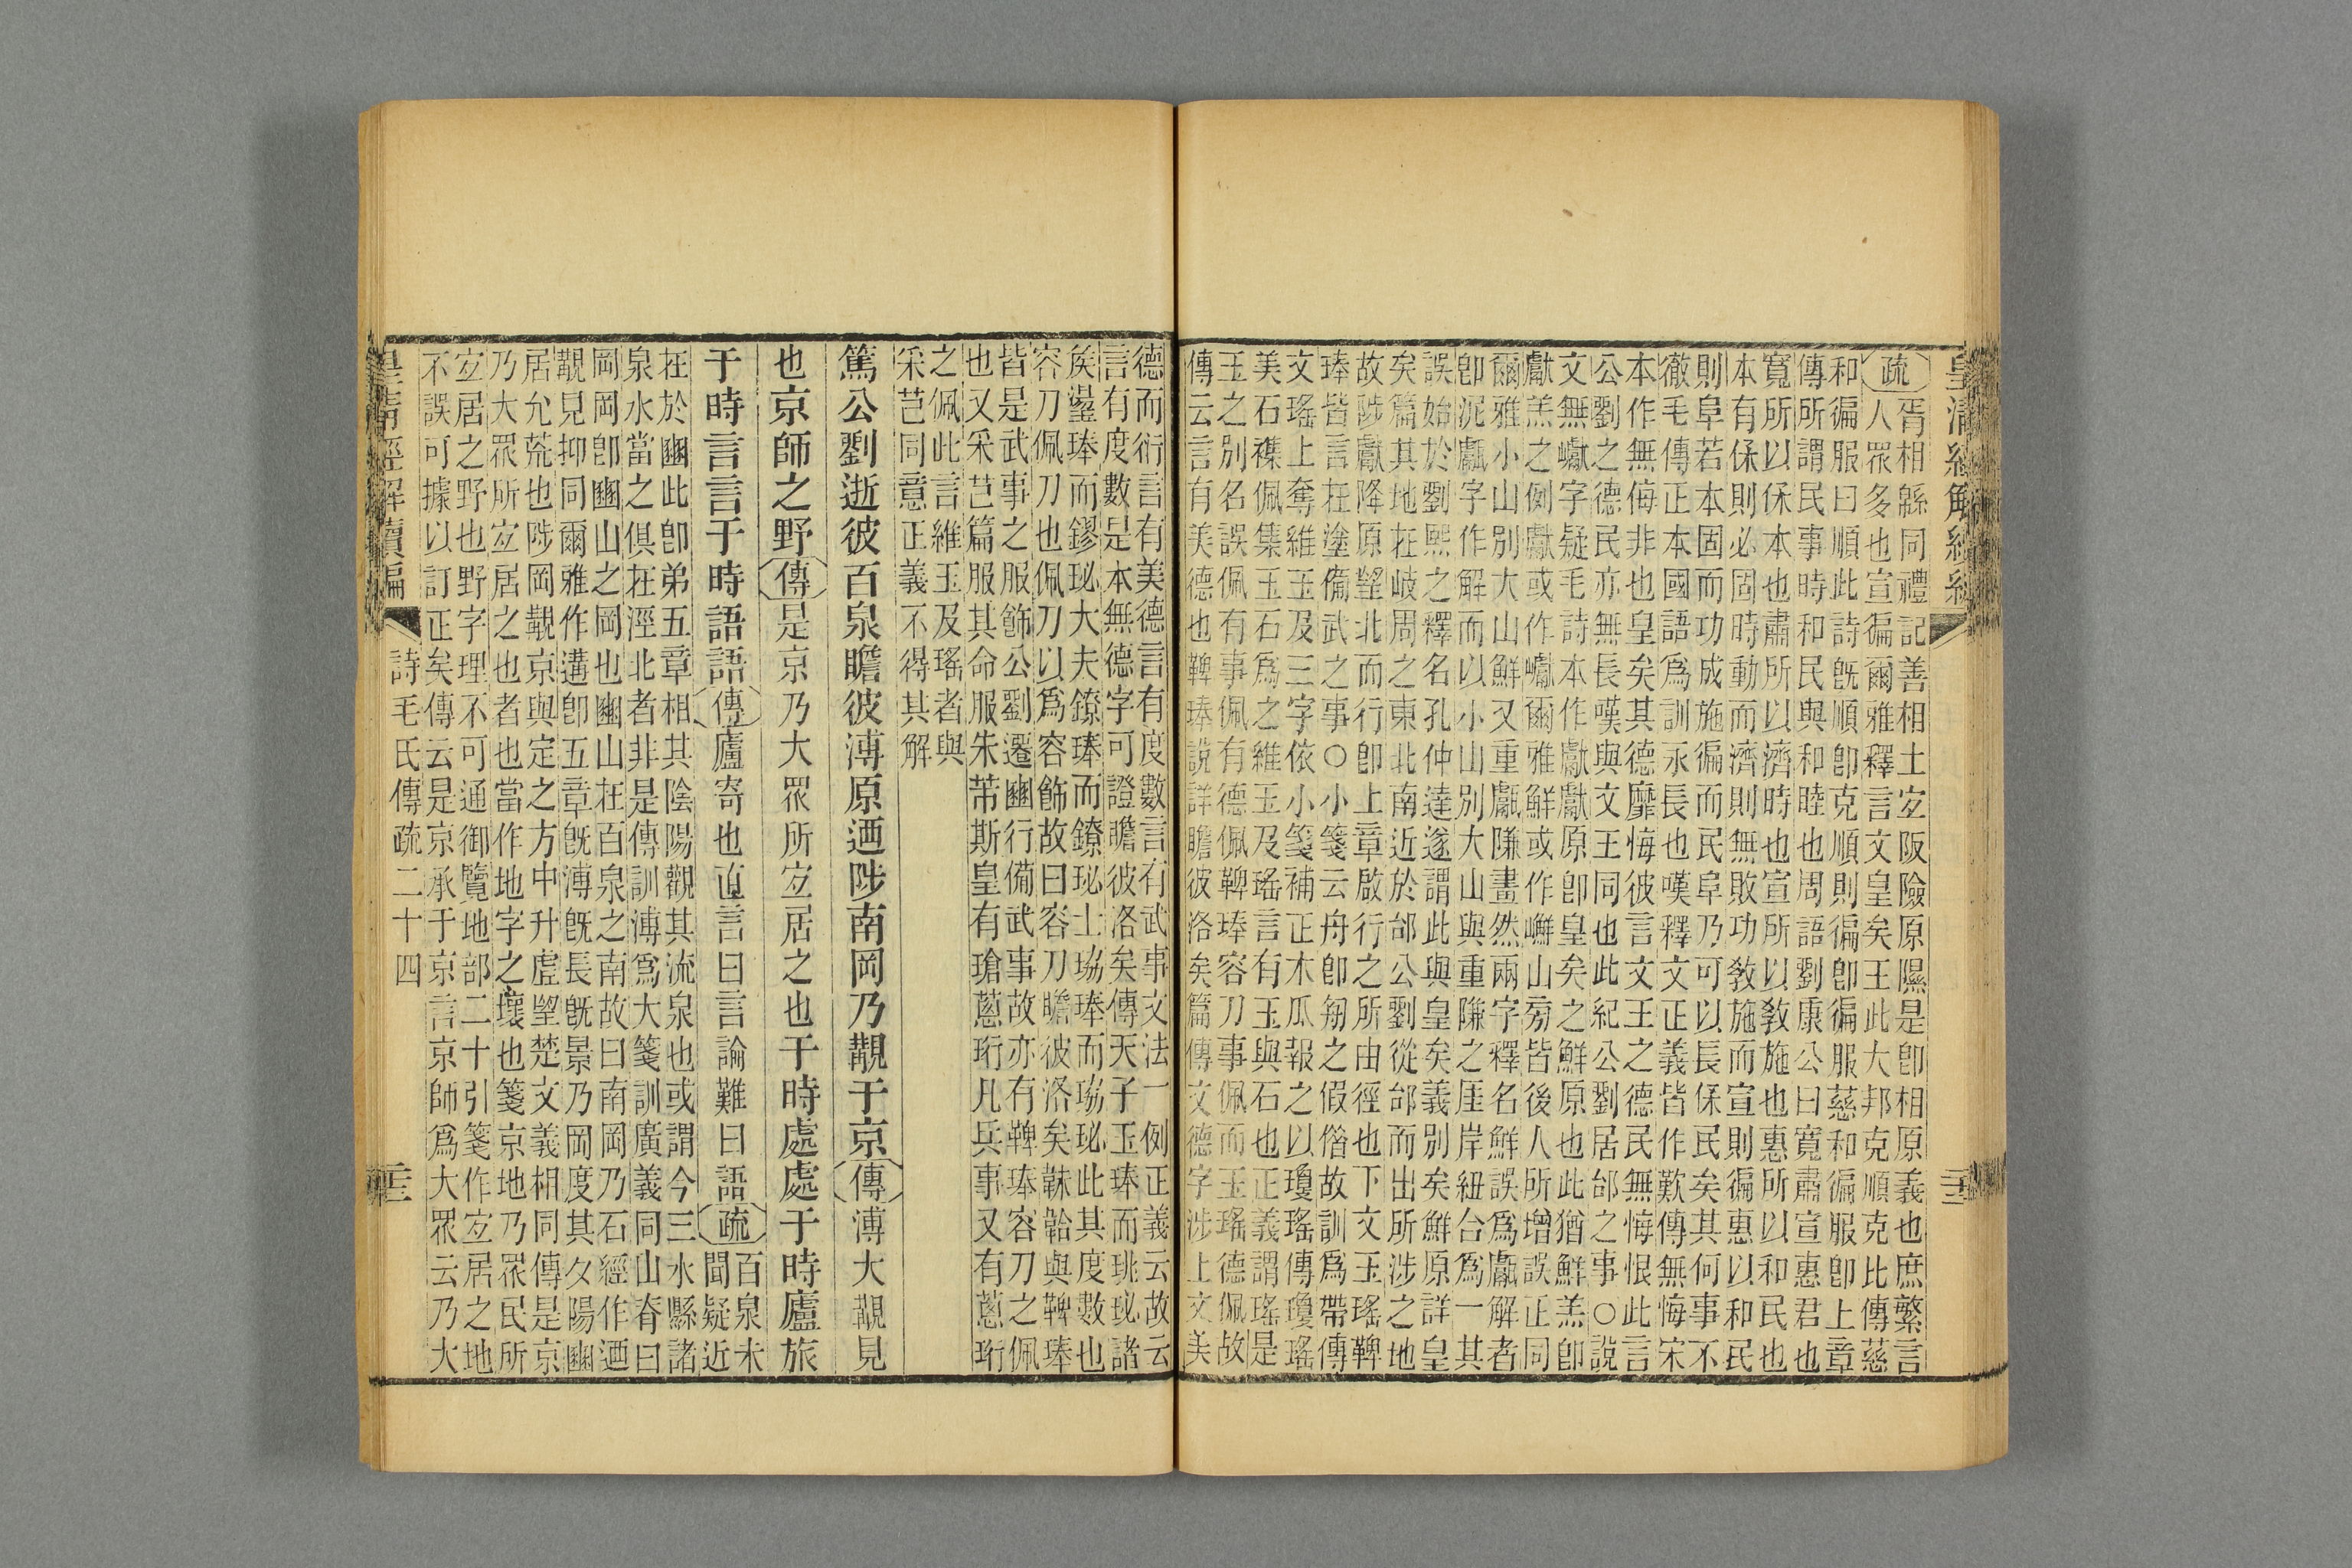 皇清經解續編
疏
胥相繇同禮記善相土宐阪險原隰是卽相原義也庶繁言
人眾多也宣徧爾雅釋言文皇矣王此大邦克順克比傳慈
和徧服曰順此詩旣順卽克順則徧卽徧服慈和徧服卽上章
傳所謂民事時和民與和睦也周語劉康公曰寬肅宣惠君也
寬所以保本也肅所以濟時也宣所以敎施也惠所以和民也
本有保則必固時動而濟則無敗功敎施而宣則徧惠以和民
則阜若本固而功成施徧而民阜乃可以長保民矣其何事不
徹毛傳正本國語爲訓永長也嘆釋文正義皆作歎傳無悔宋
本作無侮非也皇矣其德靡悔彼言文王之德民無悔恨此言
公劉之德民亦無長嘆與文王同也此紀公劉居邰之事○說
文無巘字疑毛詩本作獻獻原卽皇矣之鮮原也此猶鮮羔卽
獻羔之例獻或作巘爾雅鮮或作嶰山旁皆後人所增誤正同
爾雅小山別大山鮮又重甗隒畫然兩字釋名鮮誤爲甗解者
卽泥甗字作解而以小山別大山與重隒之厓岸紐合爲一其
誤始於劉熙之釋名孔仲達遂謂此與皇矣義別矣鮮原詳皇
矣篇其地在岐周之東北南近於邰公劉從邰而出所涉之地
故陟獻降原望北而行卽上章啟行之所由徑也下文玉瑤鞞
琫皆言在塗備武之事○小箋云舟卽匊之假借故訓爲帶傳
文瑤上奪維玉及三字依小箋補正木瓜報之以瓊瑤傳瓊瑤
美石襍佩集玉石爲之維玉及瑤言有玉與石也正義謂瑤是
玉之別名誤佩有事佩有德佩鞞琫容刀事佩而玉瑤德佩故
傳云言有美德也鞞琫說詳瞻彼洛矣篇傳文德字涉上文美
德而衍言有美德言有度數言有武事文法一例正義云故云
言有度數是本無德字可證瞻彼洛矣傳天子玉琫而珧珌諸
矦璗琫而鏐珌大夫鐐琫而鐐珌士珕琫而珕珌此其度數也
容刀佩刀也佩刀以爲容飾故曰容刀瞻彼洛矣韎韐與鞞琫
皆是武事之服飾公劉遷豳行備武事故亦有鞞琫容刀之佩
也又采芑篇服其命服朱芾斯皇有瑲蔥珩凡兵事又有蔥珩
之佩此言維玉及瑤者與
采芑同意正義不得其解
篤公劉逝彼百泉瞻彼溥原迺陟南岡乃覯于京傳溥大覯見
也京師之野傳是京乃大眾所宐居之也于時處處于時廬旅
于時言言于時語語傳廬寄也直言曰言論難曰語疏百泉未
聞疑近
在於豳此卽弟五章相其陰陽觀其流泉也或謂今三水縣諸
泉水當之俱在涇北者非是傳訓溥爲大箋訓廣義同山脊曰
岡岡卽豳山之岡也豳山在百泉之南故曰南岡乃石經作迺
覯見抑同爾雅作遘卽五章旣溥旣長旣景乃岡度其夕陽豳
居允荒也陟岡覯京與定之方中升虛望楚文義相同傳是京
乃大眾所宐居之也者也當作地字之壞也箋京地乃眾民所
宐居之野也野字理不可通御覽地部二十引箋作宐居之地
不誤可據以訂正矣傳云是京承于京言京師爲大眾云乃大
皇清經解續編 詩毛氏傳疏二十四